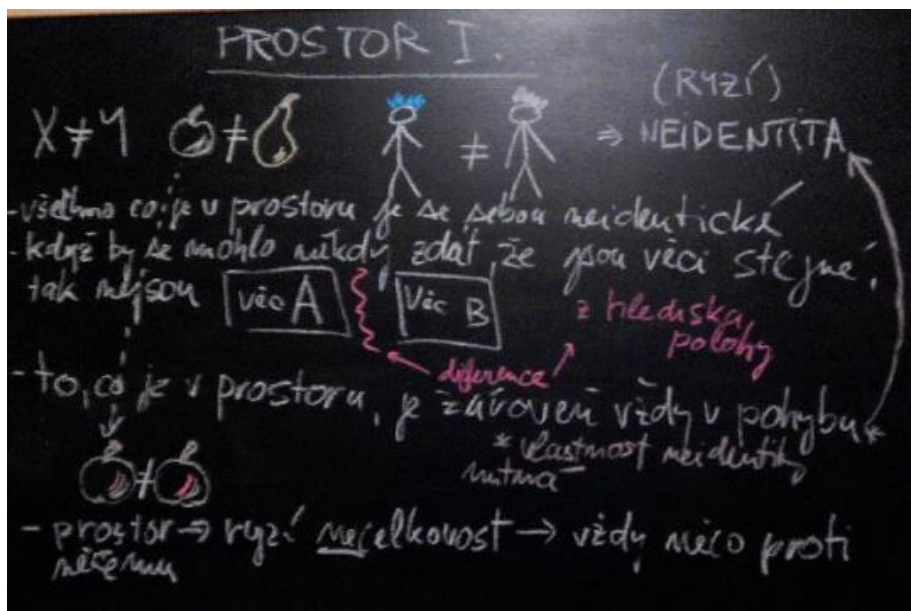 PROSTOR I.
(RYZÍ)
X ≠ Y ≠ ≠ ⇒ NEIDENTITA
- všechno co je v prostoru je se sebou neidentické
- když by se mohlo někdy zdát, že jsou věci stejné,
tak nejsou
věc A
Věc B
z hlediska
polohy
diference
- to, co je v prostoru, je zároveň vždy v pohybu *
* vlastnost neidentity
nutná
≠
- prostor → ryzí necelkovost → vždy něco proti
něčemu